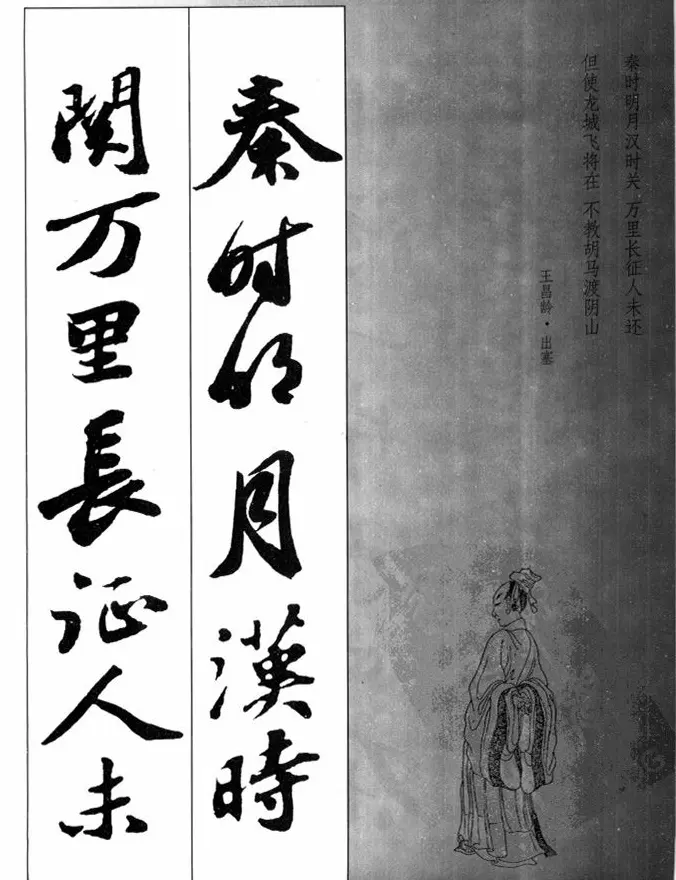 秦时明月汉时关 万里长征人未还
但使龙城飞将在 不教胡马渡阴山
王昌龄·出塞
秦时明月漢時
関万里長征人未